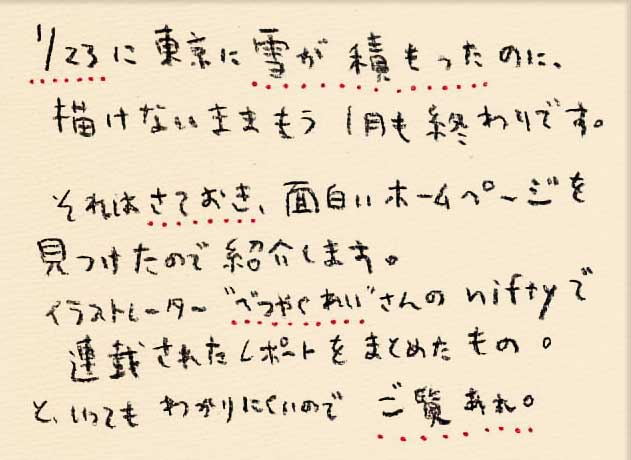 1/23に東京に雪が積もったのに、
描けないまままもう1月も終わりです。
それはさておき、面白いホームページを
見つけたので紹介します。
イラストレーター"べつやくれい"さんのniftyで
連載されたレポートをまとめたもの。
と、いってもわかりにくいのでご覧あれ。